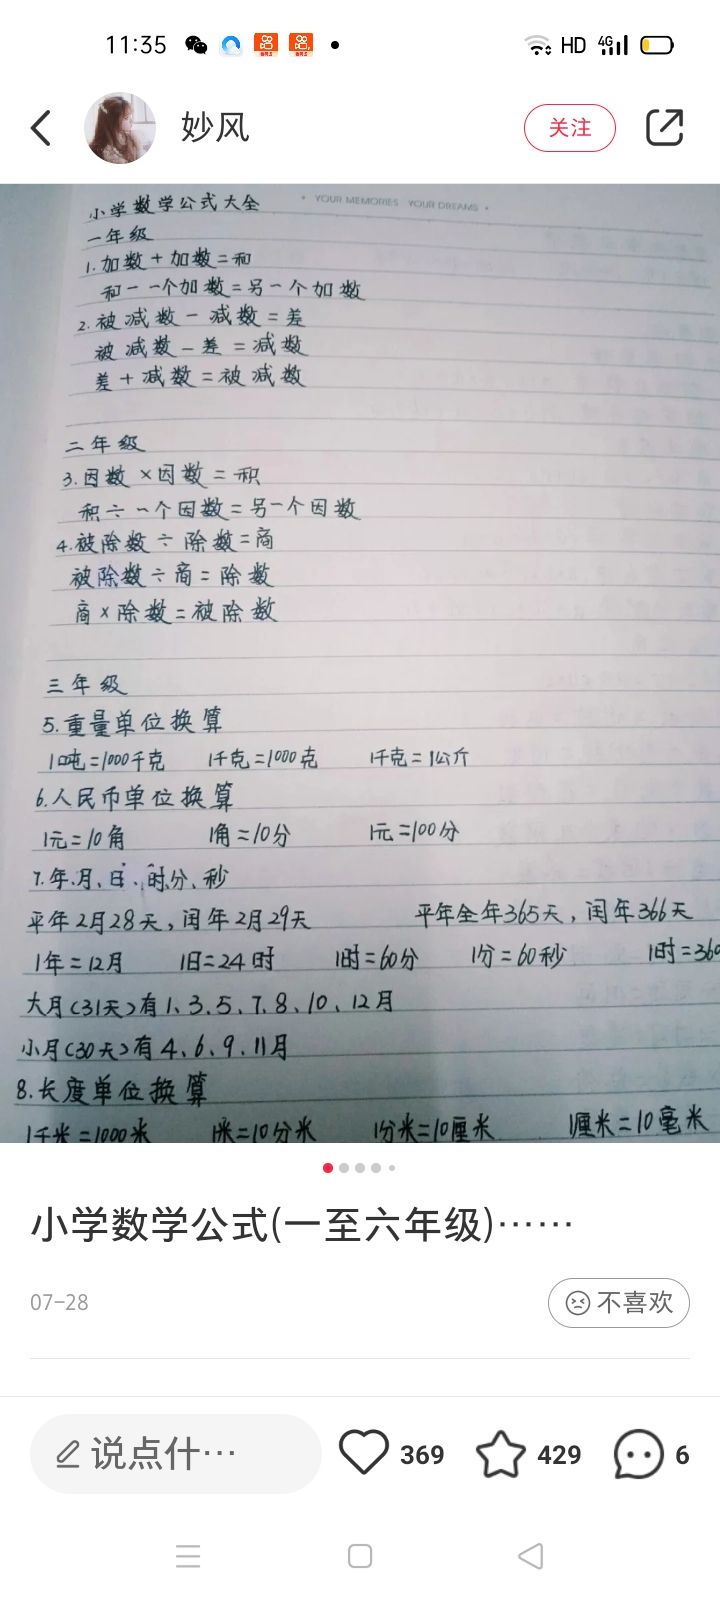 11:35
HD 4G
妙风
关注
小学数学公式大全
YOUR MEMORIES YOUR DREAMS
一年级
1.加数+加数=和
和-一个加数=另一个加数
2.被减数-减数=差
被减数-差=减数
差+减数=被减数
二年级
3.因数×因数=积
积÷一个因数=另一个因数
4.被除数÷除数=商
被除数÷商=除数
商×除数=被除数
三年级
5.重量单位换算
1吨=1000千克 1千克=1000克 1千克=1公斤
6.人民币单位换算
1元=10角 1角=10分 1元=100分
7.年、月、日、时、分、秒
平年2月28天,闰年2月29天 平年全年365天,闰年366天
1年=12月 1日=24时 1时=60分 1分=60秒 1时=360
大月(31天)有1、3、5、7、8、10、12月
小月(30天)有4、6、9、11月
8.长度单位换算
1千米=1000米 1米=10分米 1分米=10厘米 1厘米=10毫米
小学数学公式(一至六年级)……
07-28
不喜欢
说点什…
369
429
6